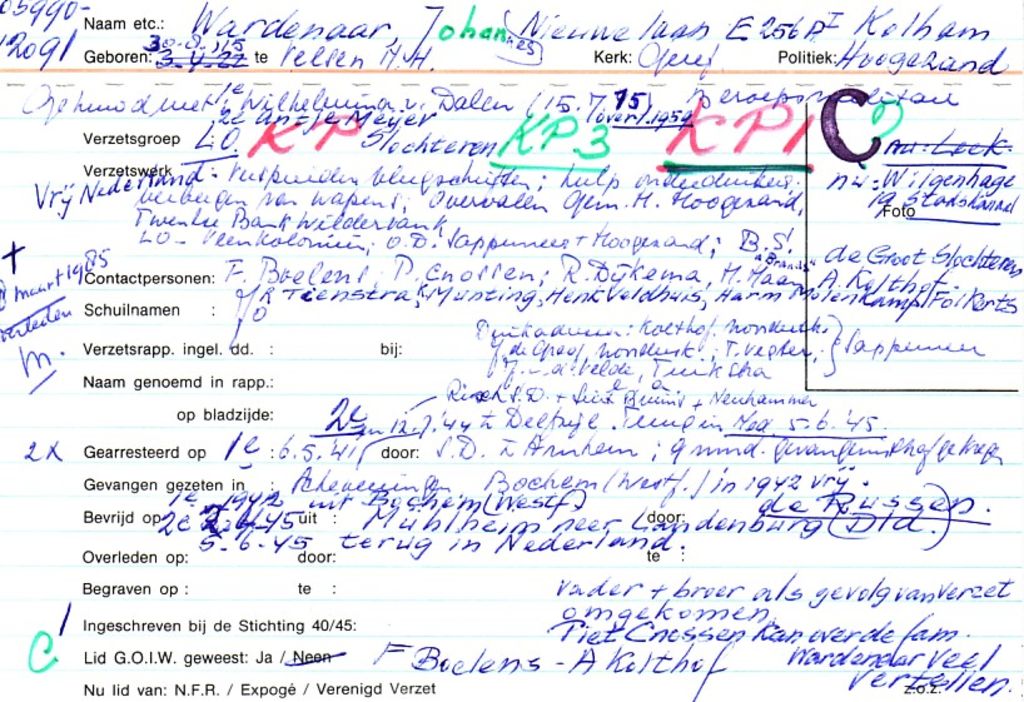 05990-
Naam etc.: Wardenaar, Johannes Nieuwe laan E 256 A I Kolham
12091 Geboren: 30.8.'15 te Velsen N.H. Kerk: Geref Politiek: Hoogezand
Gehuwd met 1e Wilhelmina v. Dalen (15.7.'15) Beroep: militair
2e Antje Meijer overl. 1959
Verzetsgroep LO. KP Slochteren KP3 KP1 C
Verzetswerk
Vrij Nederland. Verspreiden vlugschriften; hulp onderduikers; nw = Wilgenhage
verbergen van wapens; overvallen Gem. H. Hoogezand, 19 Stadskanaal
Foto
Twentse Bank Wildervank
LO - Veenkoloniën; O.D. Sappemeer + Hoogezand; B.S. "Brands" de Groot Slochteren
+ maart 1985 Contactpersonen: F. Boelens; P. Cnossen; R. Dijkema, H. Haan, A. Kolthof.
R Tienstra, Munting, Henk Veldhuis, Harm Molenkamp, Folkerts
overleden Schuilnamen : Jo
m. Duikadressen: Kolthof, Noorderstr.
Verzetsrapp. ingel. dd. : bij: J. de Groot, Noorderstr.; T. Vegter, } Sappemeer
Naam genoemd in rapp.:
op bladzijde: 2e 12.7.'44 te Delfzijl. Terug in Ned 5-6.'45.
2x Gearresteerd op 1e : 6.5.'41 door: S.D. te Arnhem; 9 mnd. gevangenisstraf gekregen
Gevangen gezeten in : Scheveningen Bochem (Westf.) in 1942 vrij.
1e 1942 uit Bochem (Westf)
Bevrijd op 2e 2.6.'45 uit : Muhlheim neer Landenburg (Dtd.) door: de Russen.
5-6-45 terug in Nederland.
Overleden op: door: te :
Begraven op : te : vader + broer als gevolg van verzet
omgekomen.
Ingeschreven bij de Stichting 40/45: Piet Cnossen kan over de fam.
C Lid G.O.I.W. geweest: Ja / Neen F Boelens - A Kolthof Wardenaar veel
vertellen.
Nu lid van: N.F.R. / Expogé / Verenigd Verzet z.o.z.